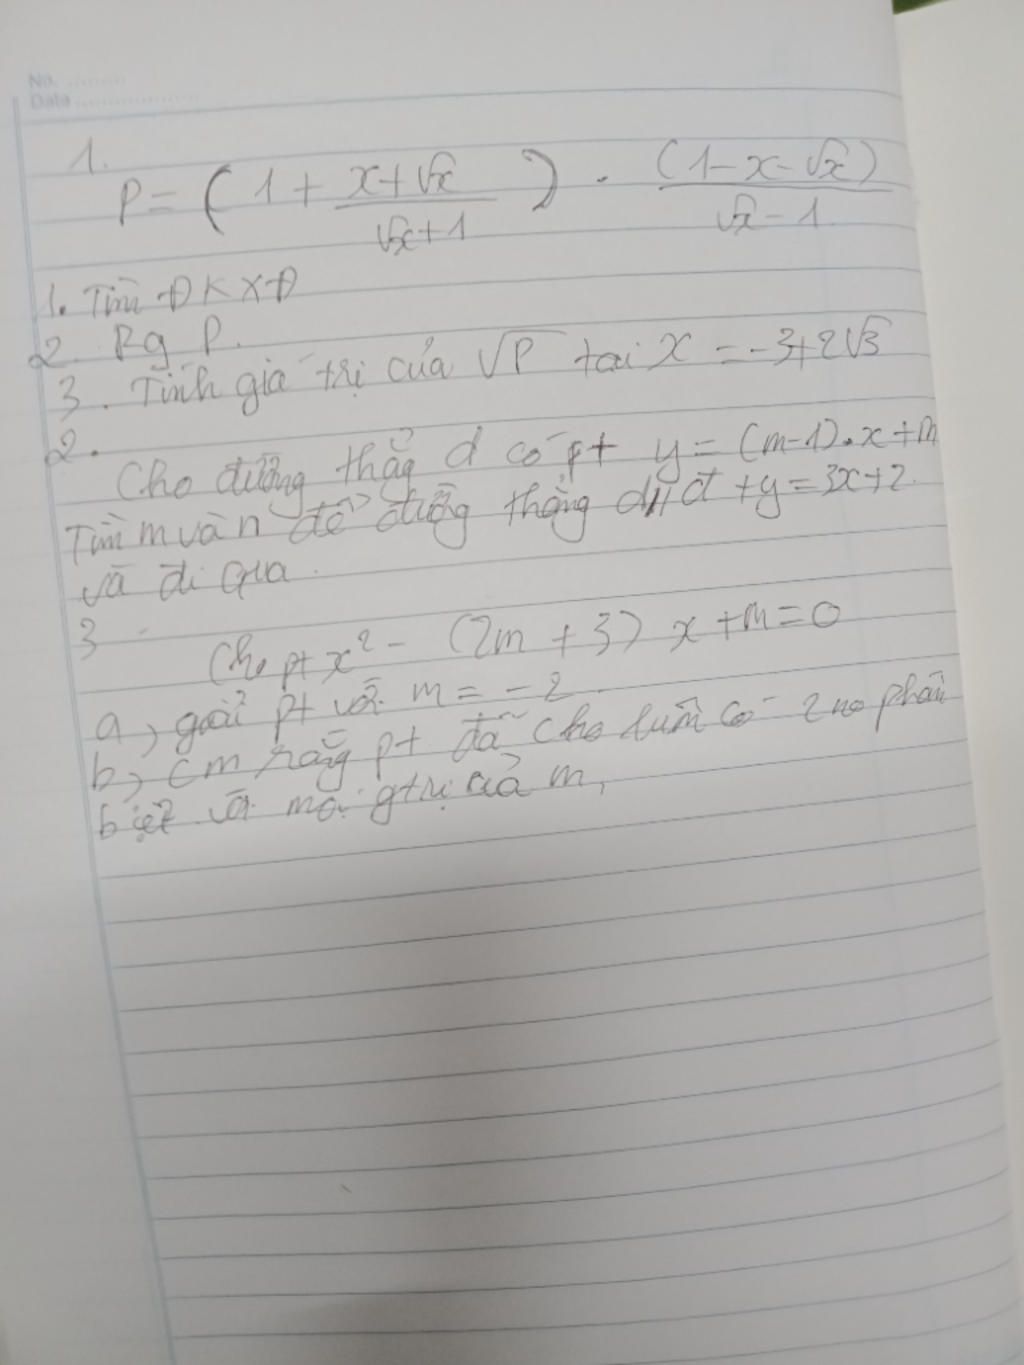 No. ..........
Date ....................
1.
P = ( 1 + (x+√x)/(√x+1) ) . (1-x-√x)/(√x-1)
1. Tìm ĐKXĐ
2. Rg P.
3. Tính giá trị của √P tai x = -3+2√3
2.
Cho đường thẳg d có pt y = (m-1).x+m
Tìm m và n để đường thẳng d // đt y = 3x+2.
và đi qua.
3
Cho pt x² - (2m + 3) x + m = 0
a, giải pt với m = -2
b, cm rằg pt đã cho luôn có 2 no phân
biệt với mọi gtrị của m,